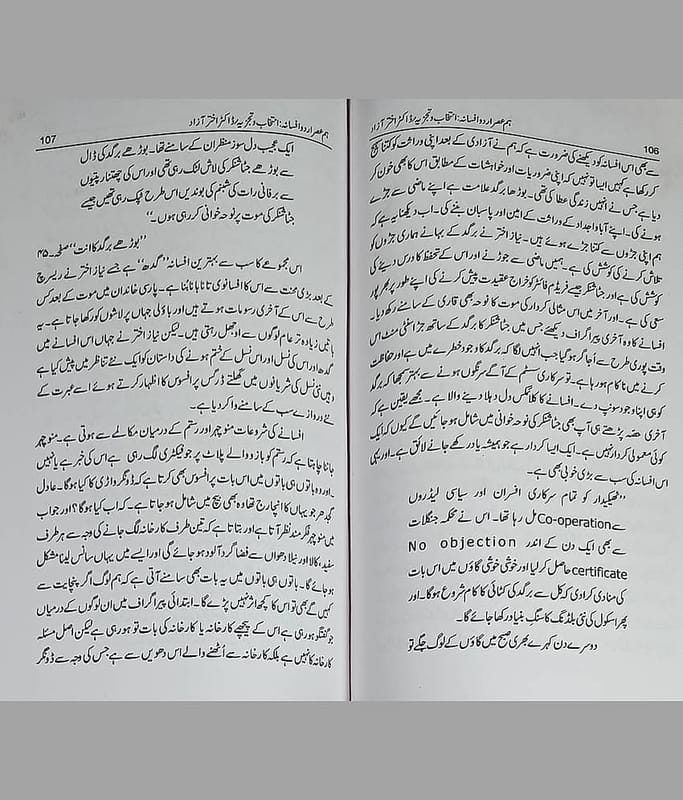 ہم عصر اردو افسانہ: انتخاب و تجزیہ / ڈاکٹر اختر آزاد
106
سے بھی اس افسانہ کو دیکھنے کی ضرورت ہے کہ ہم نے آزادی کے بعد اپنی وراثت کو کتنا سنبھال
کر رکھا ہے کہیں ایسا تو نہیں کہ اپنی ضروریات اور خواہشات کے مطابق اس کا بھی خون کر
دیا ہے جس نے انہیں زندگی عطا کی تھی۔ بوڑھا برگد علامت ہے اپنے ماضی سے جڑے
ہونے کی۔ اپنے آبا و اجداد کے وراثت کے امین اور پاسبان بننے کی۔ اب دیکھنا یہ ہے کہ
ہم اپنی جڑوں سے کتنا جڑے ہوئے ہیں۔ نیاز اختر نے برگد کے بہانے ہماری جڑوں کو
تلاش کرنے کی کوشش کی ہے۔ ہمیں ماضی سے جوڑنے اور اس کے تحفظ کا درس دینے کی
کوشش کی ہے اور جٹاشنکر جیسے فریڈم فائٹر کو خراج عقیدت پیش کرنے کی اپنے طور پر بھر پور
سعی کی ہے۔ اور آخر میں اس مثالی کردار کی موت کا نوحہ بھی قاری کے سامنے رکھ دیا۔
افسانے کا وہ آخری پیراگراف دیکھئے جس میں جٹاشنکر کا برگد کے ساتھ جڑا سنٹی منٹ اس
وقت پوری طرح سے اُجاگر ہو گیا جب انہیں لگا کہ برگد کا وجود خطرے میں ہے اور حفاظت
کرنے میں ناکام ہو رہا ہے۔ تو سرکاری سسٹم کے آگے سرنگوں ہونے سے بہتر سمجھا کہ برگد
کو ہی اپنا وجود سونپ دے۔ افسانے کا کلائمکس دل دہلا دینے والا ہے۔ مجھے یقین ہے کہ
آخری حصّہ پڑھتے ہی آپ بھی جٹاشنکر کی نوحہ خوانی میں شامل ہو جائیں گے کیوں کہ ایک
کوئی معمولی کردار نہیں ہے۔ ایک ایسا کردار ہے جو ہمیشہ یاد رکھے جانے لائق ہے۔ اور یہی
اس افسانہ کی سب سے بڑی خوبی بھی ہے۔
”ٹھیکیدار کو تمام سرکاری افسران اور سیاسی لیڈروں
سے Co-operation مل رہا تھا۔ اس نے محکمہ جنگلات
سے بھی ایک دن کے اندر No objection
certificate حاصل کر لیا اور خوشی خوشی گاؤں میں اس بات
کی منادی کرا دی کہ کل سے برگد کی کٹائی کا کام شروع ہو گا۔ اور
پھر اسکول کی نئی بلڈنگ کا سنگ بنیاد رکھا جائے گا۔
دوسرے دن کہرے بھری صبح میں گاؤں کے لوگ جگے تو
ہم عصر اردو افسانہ: انتخاب و تجزیہ / ڈاکٹر اختر آزاد
107
ایک عجیب دل سوز منظر ان کے سامنے تھا۔ بوڑھے برگد کی ڈال
سے بوڑھے جٹاشنکر کی لاش لٹک رہی تھی اور اس کی چھتنار پتیوں
سے برفانی رات کی شبنم کی بوندیں اس طرح ٹپک رہی تھیں جیسے
جٹاشنکر کی موت پر نوحہ خوانی کر رہی ہوں۔“
”بوڑھے برگد کا انت“ صفحہ۔ ۴۵
اس مجموعے کا سب سے بہترین افسانہ ”گدھ“ ہے جسے نیاز اختر نے ریسرچ
کے بعد بڑی محنت سے اس کا افسانوی تانا بانا بُنا ہے۔ پارسی خاندان میں موت کے بعد کس
طرح سے اس کے آخری رسومات ہوتے ہیں اور باؤلی جہاں پر لاشوں کو رکھا جاتا ہے۔ یہ
باتیں زیادہ تر عام لوگوں سے اوجھل رہتی ہیں۔ لیکن نیاز اختر نے جہاں اس افسانے میں
گدھ اور اس کی نسل اور اس نسل کے ختم ہونے کی داستان کو ایک نئے تناظر میں پیش کیا ہے
وہیں نئی نسل کی شریانوں میں گھلتے ڈرگس پر افسوس کا اظہار کرتے ہوئے اسے عبرت کے
نئے دروازے سب کے سامنے وا کر دیا ہے۔
افسانے کی شروعات منوچہر اور رستم کے درمیان مکالمے سے ہوتی ہے۔ منوچہر
جاننا چاہتا ہے کہ رستم کو بازو والے پلاٹ پر جو فیکٹری لگ رہی ہے اس کی خبر ہے یا نہیں
۔ اور وہ باتوں ہی باتوں میں اس بات پر افسوس بھی کرتا ہے کہ ڈونگر واڑی کا کیا ہوگا۔ عادل
گدھر جو یہاں کا انچارج تھا وہ بھی بیچ میں شامل ہو جاتا ہے۔ کہ اب کیا ہوگا؟ اور جواب
میں منوچہر فکر مند نظر آتا ہے اور بتاتا ہے کہ تین طرف کارخانہ لگ جانے کی وجہ سے ہر طرف
سفید، کالا اور نیلا دھواں سے فضا گرد آلود ہو جائے گی اور ایسے میں یہاں سانس لینا مشکل
ہو جائے گا۔ باتوں ہی باتوں میں یہ بات بھی سامنے آتی ہے کہ ہم لوگ اگر پنچایت سے
کہیں گے بھی تو اس کا کچھ اثر نہیں پڑے گا۔ ابتدائی پیراگراف میں ان لوگوں کے درمیاں
جو گفتگو ہو رہی ہے اس کے پیچھے کارخانہ یا کارخانہ کی بات تو ہو رہی ہے لیکن اصل مسئلہ
کارخانہ کا نہیں ہے بلکہ کارخانہ سے اُٹھنے والے اس دھویں سے ہے جس کی وجہ سے ڈونگر